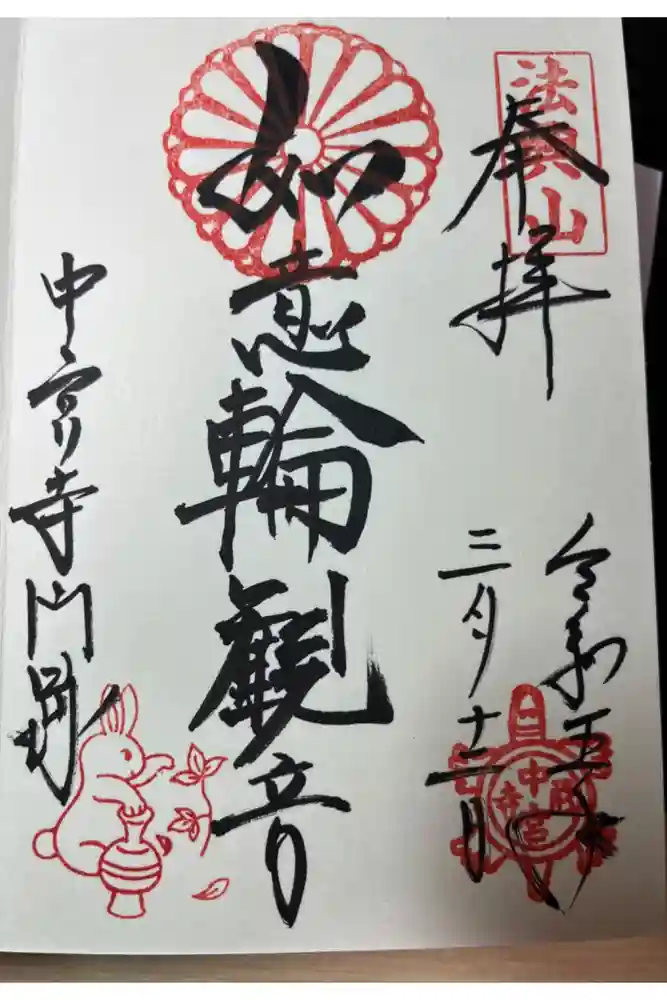 奉拝
法興山
令和五年
三月十二日
如意輪観音
中宮寺門跡
中宮寺